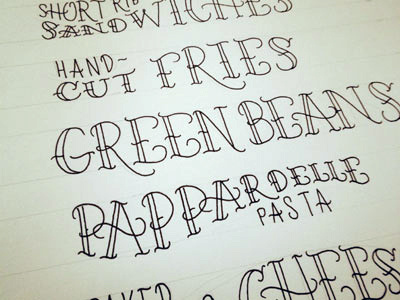 SHORT RIB
SANDWICHES
HAND-
CUT FRIES
GREEN BEANS
PAPPARDELLE
PASTA